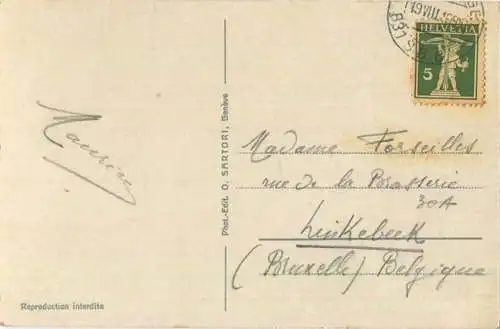 HELVETIA
5
Maurice
Phot.-Edit. O. SARTORI, Genève
Madame Forseilles
rue de la Brasserie
30A
Linkebeek
(Bruxelle) Belgique
Reproduction interdite